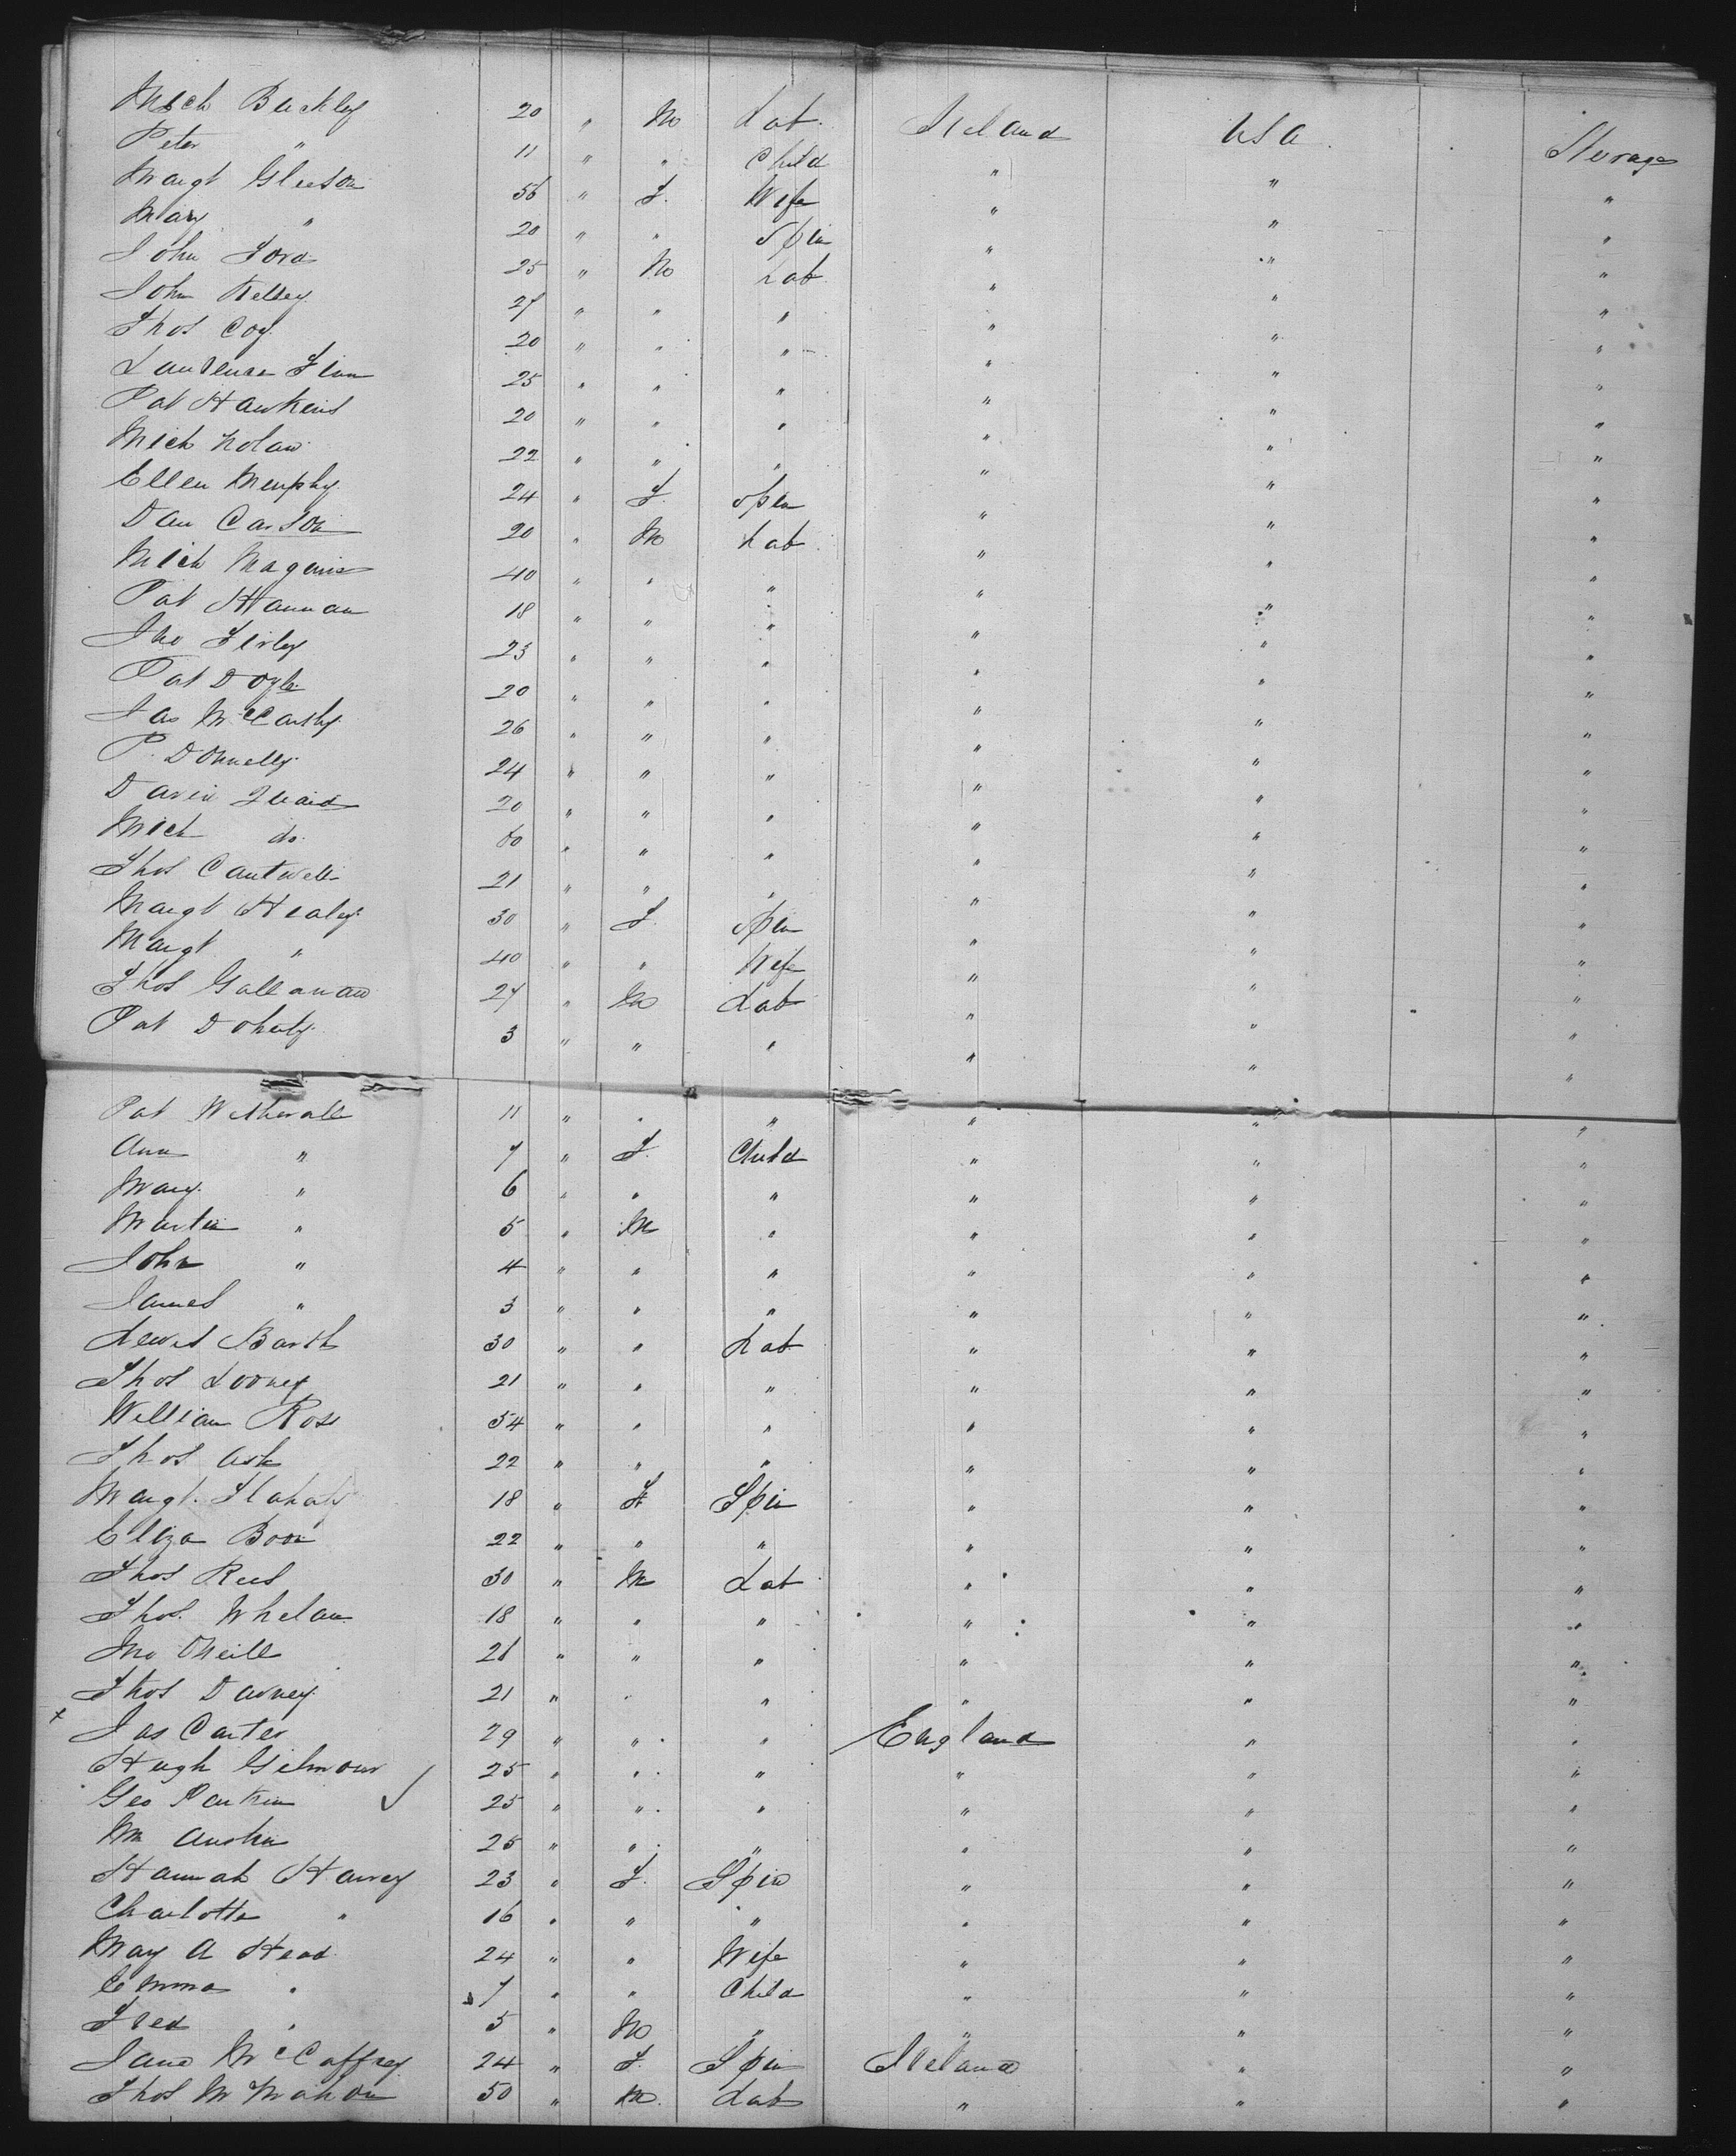 Mich Buckley 20 " M Lab. Ireland USA Steerage
Peter " 11 " " Child " " "
Margt Gleeson 56 " F. Wife " " "
Mary " 20 " " Spin " " "
John Ford 25 " M Lab " " "
John Kelley 27 " " " " " "
Thos Coy 20 " " " " " "
Laurence 25 " " " " " "
Pat Hawkins 20 " " " " " "
Mich Nolan 22 " " " " " "
Ellen Murphy 24 " F. Spin " " "
Dan Carson 20 " M Lab " " "
Mich 40 " " " " " "
Pat Hannan 18 " " " " " "
Jno 23 " " " " " "
Pat Doyle 20 " " " " " "
Jas McCarthy 26 " " " " " "
P. Donnelly 24 " " " " " "
David Quaid 20 " " " " " "
Mich do. 60 " " " " " "
Thos Cantwell 21 " " " " " "
Margt Healey 30 " F. Spin " " "
Margt " 40 " " Wife " " "
Thos Gallanan 27 " M Lab " " "
Pat Doherty 3 " " " " " "
Pat Witherall 11 " " " " " "
Ann " 7 " F. Child " " "
Mary " 6 " " " " " "
Martin " 5 " M " " " "
John " 4 " " " " " "
James " 3 " " " " " "
Lewis Barth 30 " " Lab " " "
Thos Looney 21 " " " " " "
William Ross 54 " " " " " "
Thos Ash 22 " " " " " "
Margt. Flahaty 18 " F Spin " " "
Eliza 22 " " " " " "
Thos Rees 30 " M Lab " " "
Thos. Whelan 18 " " " " " "
Jno ONeill 21 " " " " " "
Thos Davney 21 " " " " " "
x Jas Carter 29 " " " England " "
Hugh Gilmour 25 " " " " " "
Geo 25 " " " " " "
Wm Austin 25 " " " " " "
Hannah Harvey 23 " F. Spin " " "
Charlotte " 16 " " " " " "
Mary A Head 24 " " Wife " " "
Emma " 7 " " Child " " "
Fred " 5 " M " " " "
Jane McCaffrey 24 " F. Spin Ireland " "
Thos McMahon 50 " M. Lab " " "